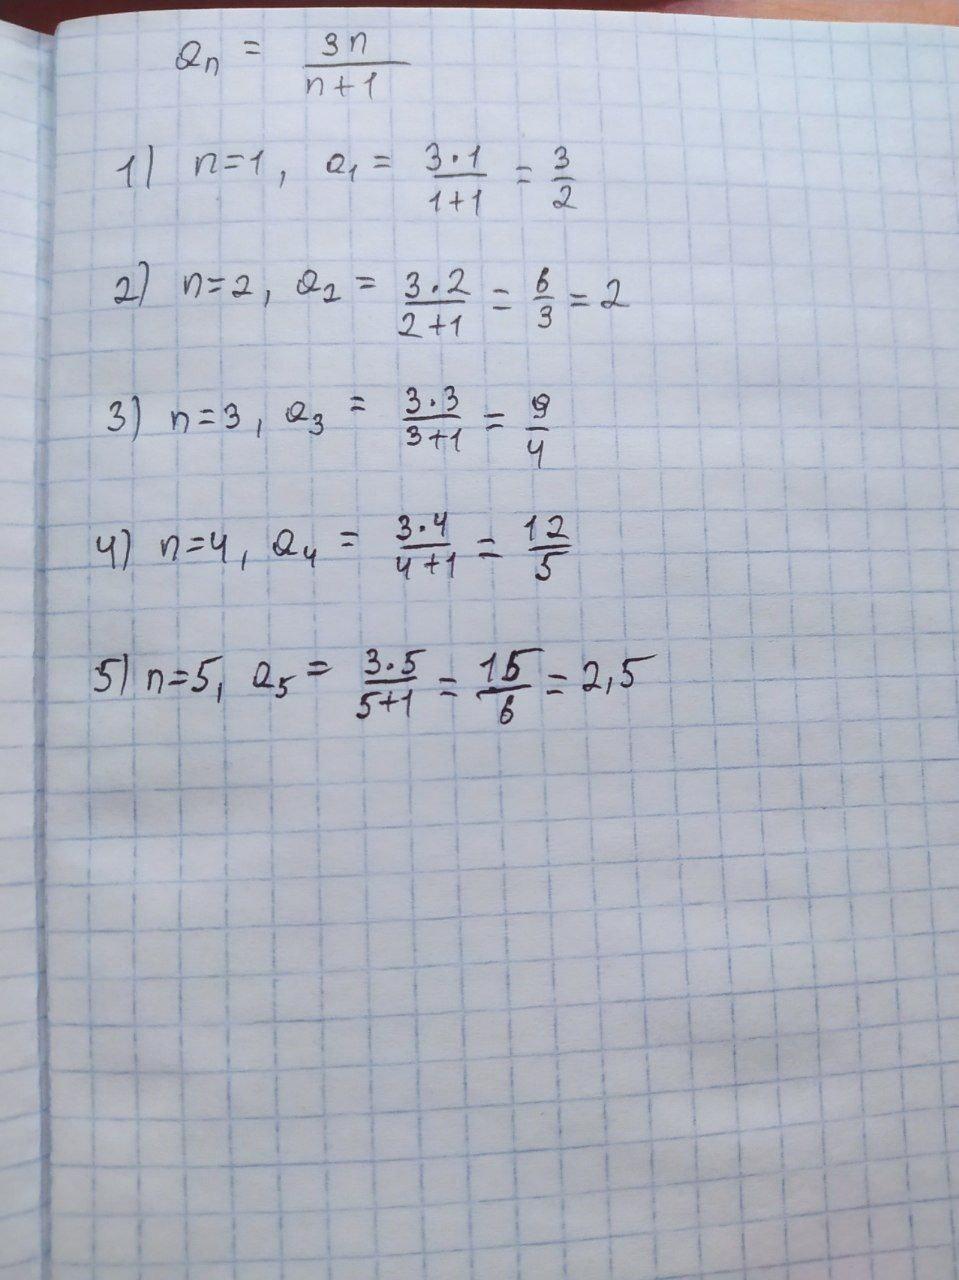 aₙ = 3n/(n+1)
1) n=1, a₁ = 3·1/(1+1) = 3/2
2) n=2, a₂ = 3·2/(2+1) = 6/3 = 2
3) n=3, a₃ = 3·3/(3+1) = 9/4
4) n=4, a₄ = 3·4/(4+1) = 12/5
5) n=5, a₅ = 3·5/(5+1) = 15/6 = 2,5